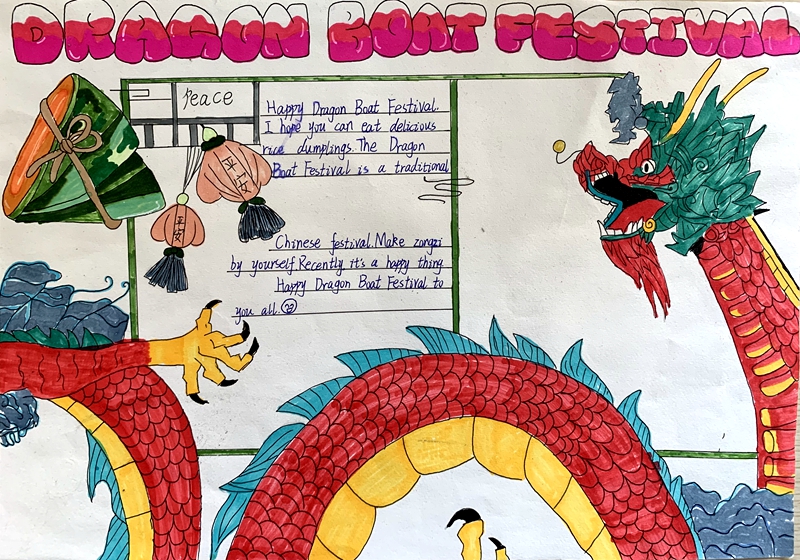 DRAGON BOAT FESTIVAL
Peace
Happy Dragon Boat Festival.
I hope you can eat delicious
rice dumplings. The Dragon
Boat Festival is a traditional
平安
平安
Chinese festival. Make zongzi
by yourself. Recently it's a happy thing
Happy Dragon Boat Festival to
you all.